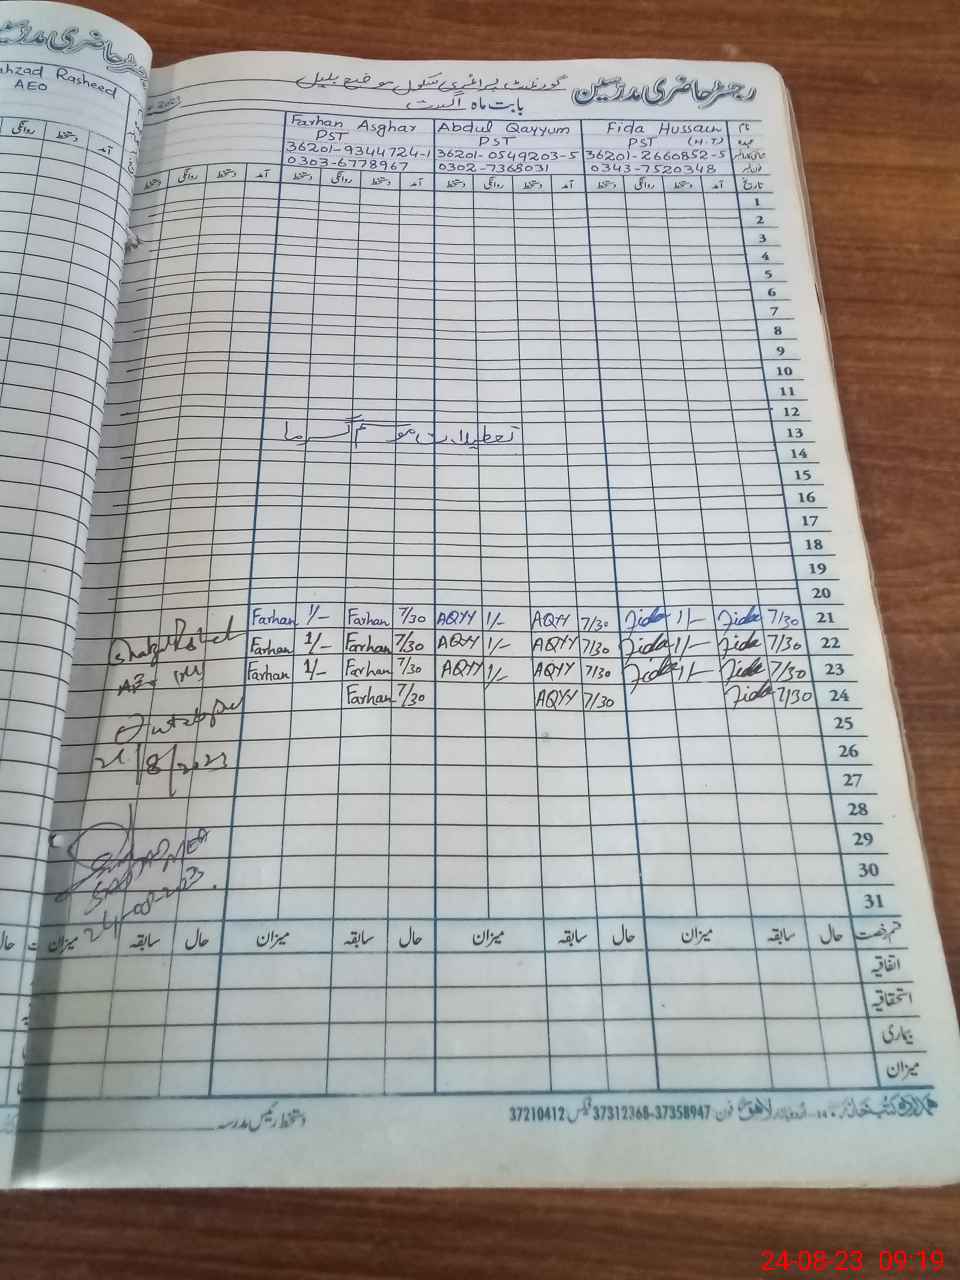 رجسٹر حاضری مدرسین
گورنمنٹ پرائمری سکول موضع
بابت ماہ اگست
Rasheed
AEO
نام Fida Hussain Abdul Qayyum Farhan Asghar
عہدہ PST (H.T) PST PST
36201-2660852-5 36201-0549203-5 36201-9344724-1
0343-7520348 0302-7368031 0303-6778967
تاریخ آمد دستخط روانگی دستخط آمد دستخط روانگی دستخط آمد دستخط روانگی دستخط آمد دستخط روانگی دستخط
1
2
3
4
5
6
7
8
9
10
11
12
13 تعطیلات موسم گرما
14
15
16
17
18
19
20
21 7/30 Fida 1/- Fida 7/30 AQYY 1/- AQYY 7/30 Farhan 1/- Farhan
22 7/30 Fida 1/- Fida 7/30 AQYY 1/- AQYY 7/30 Farhan 1/- Farhan
23 7/30 Fida 1/- Fida 7/30 AQYY 1/- AQYY 7/30 Farhan 1/- Farhan
24 7/30 Fida 7/30 AQYY 7/30 Farhan
25
26
27
28
29
30
31
/8/2023
24-08-2023
قسم رخصت حال سابقہ میزان حال سابقہ میزان حال سابقہ میزان حال سابقہ میزان
اتفاقیہ
استحقاقیہ
بیماری
میزان
دستخط رئیس مدرسہ
لاہور فون: 37312368-37358947 فیکس 37210412
24-08-23 09:19